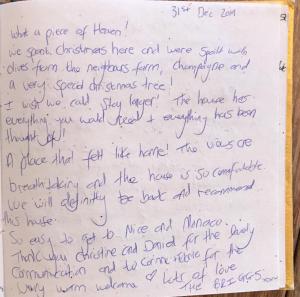 31st Dec 2019
What a piece of Heaven!
we spent Christmas here and were spoilt with
olives from the neighbours farm, champagne and
a very special christmas tree!
I wish we could stay longer! The house has
everything you would need + everything has been
thought of!
A place that felt like home! The views are
breathtaking and the house is so comfortable.
We will definitly be back and recommend
this house.
So easy to get to Nice and Monaco.
Thank you Christine and David for the lovely
communication and to Corinne for the
very warm welcome ♡ Lots of love
THE BRIGGS